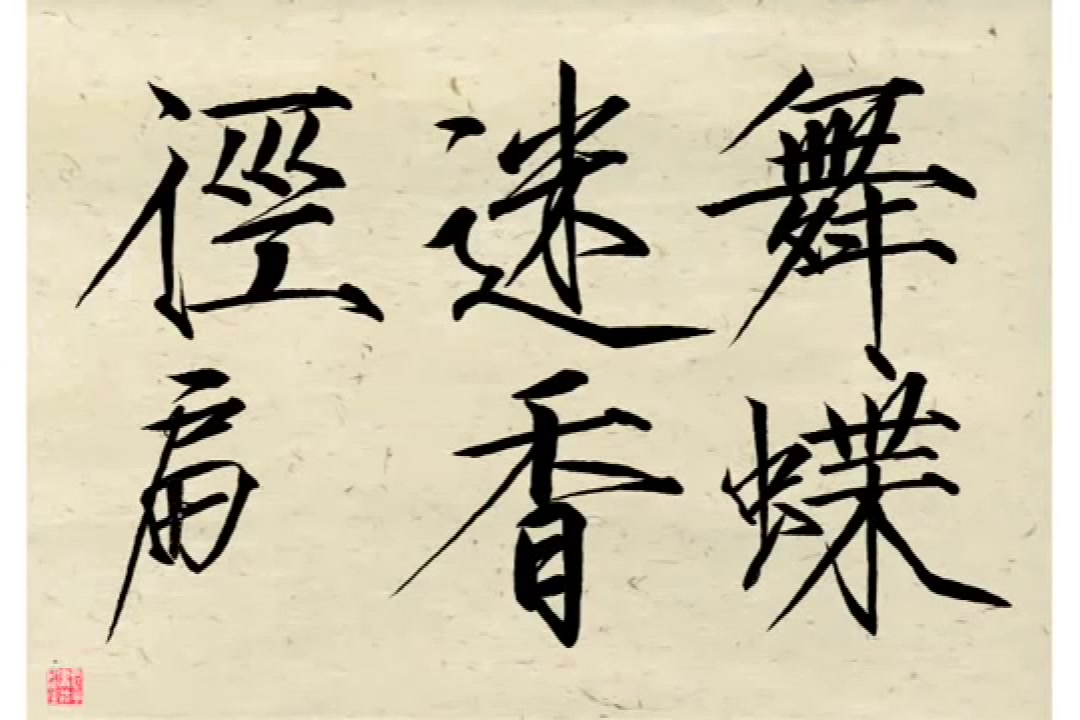 舞蝶
迷香
徑扁